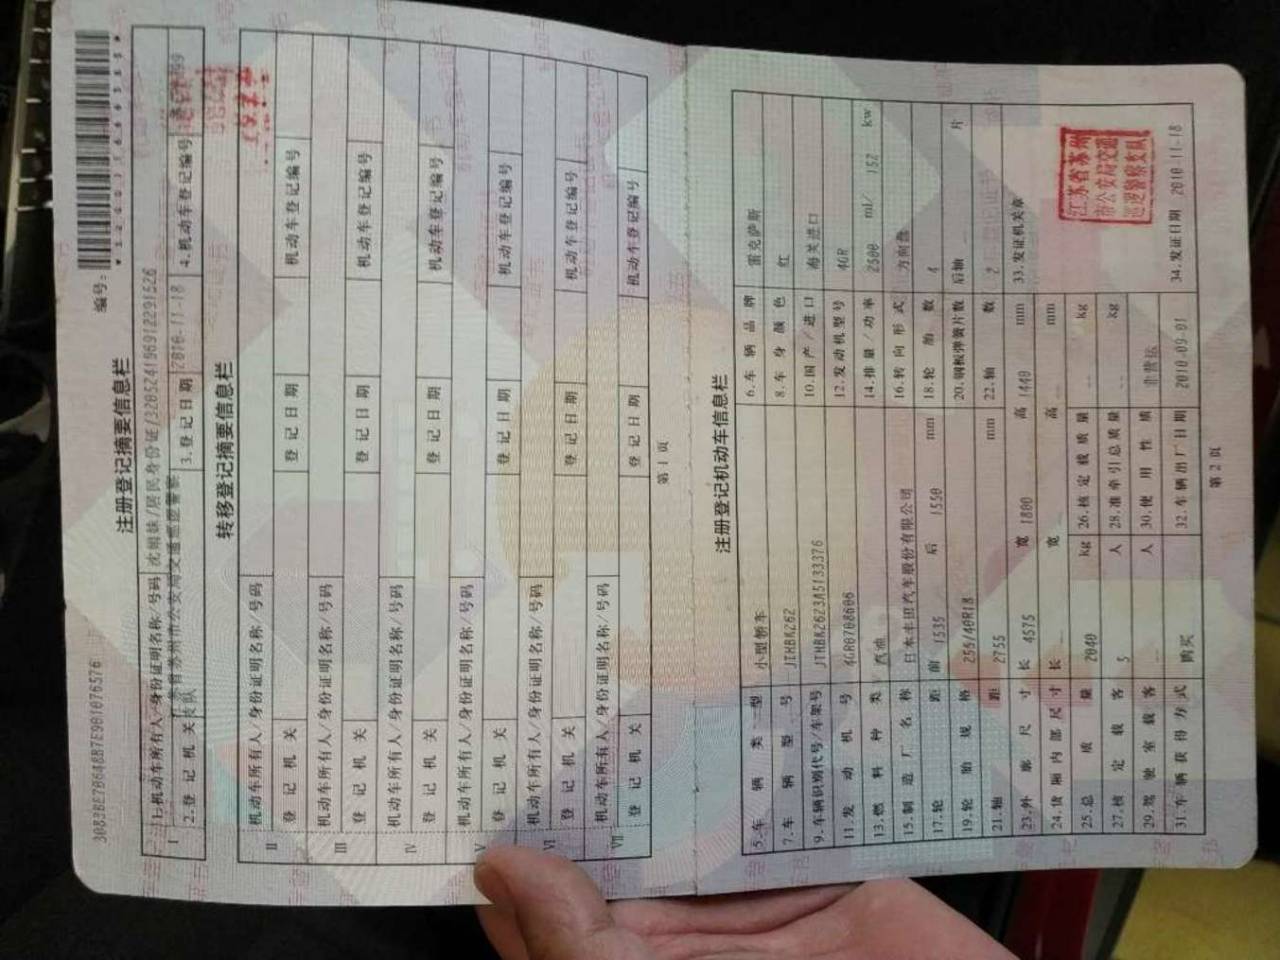 编号：
3083BE7064887E9001076576
注册登记摘要信息栏
I
1.机动车所有人/身份证明名称/号码 沈娟妹/居民身份证/320524196912291526
2.登记机关 江苏省苏州市公安局交通巡逻警察支队 3.登记日期 2010-11-18 4.机动车登记编号
转移登记摘要信息栏
II
机动车所有人/身份证明名称/号码
登记机关 登记日期 机动车登记编号
III
机动车所有人/身份证明名称/号码
登记机关 登记日期 机动车登记编号
IV
机动车所有人/身份证明名称/号码
登记机关 登记日期 机动车登记编号
V
机动车所有人/身份证明名称/号码
登记机关 登记日期 机动车登记编号
VI
机动车所有人/身份证明名称/号码
登记机关 登记日期 机动车登记编号
VII
机动车所有人/身份证明名称/号码
登记机关 登记日期 机动车登记编号
第1页
注册登记机动车信息栏
5.车辆类型 小型轿车 6.车辆品牌 雷克萨斯
7.车辆型号 JTHBK262 8.车身颜色 红
9.车辆识别代号/车架号 JTHBK2623A5133376 10.国产/进口 海关进口
11.发动机号 4GR0708606 12.发动机型号 4GR
13.燃料种类 汽油 14.排量/功率 2500 ml/ 152 kw
15.制造厂名称 日本丰田汽车股份有限公司 16.转向形式 方向盘
17.轮距 前 1535 后 1550 mm 18.轮胎数 4
19.轮胎规格 255/40R18 20.钢板弹簧片数 后轴 -- 片
21.轴距 2755 mm 22.轴数 2
23.外廓尺寸 长 4575 宽 1800 高 1440 mm 33.发证机关章
24.货厢内部尺寸 长 -- 宽 -- 高 -- mm
25.总质量 2040 kg 26.核定载质量 -- kg
27.核定载客 5 人 28.准牵引总质量 -- kg
29.驾驶室载客 -- 人 30.使用性质 非营运
31.车辆获得方式 购买 32.车辆出厂日期 2010-09-01 34.发证日期 2010-11-18
江苏省苏州
市公安局交通
巡逻警察支队
第2页